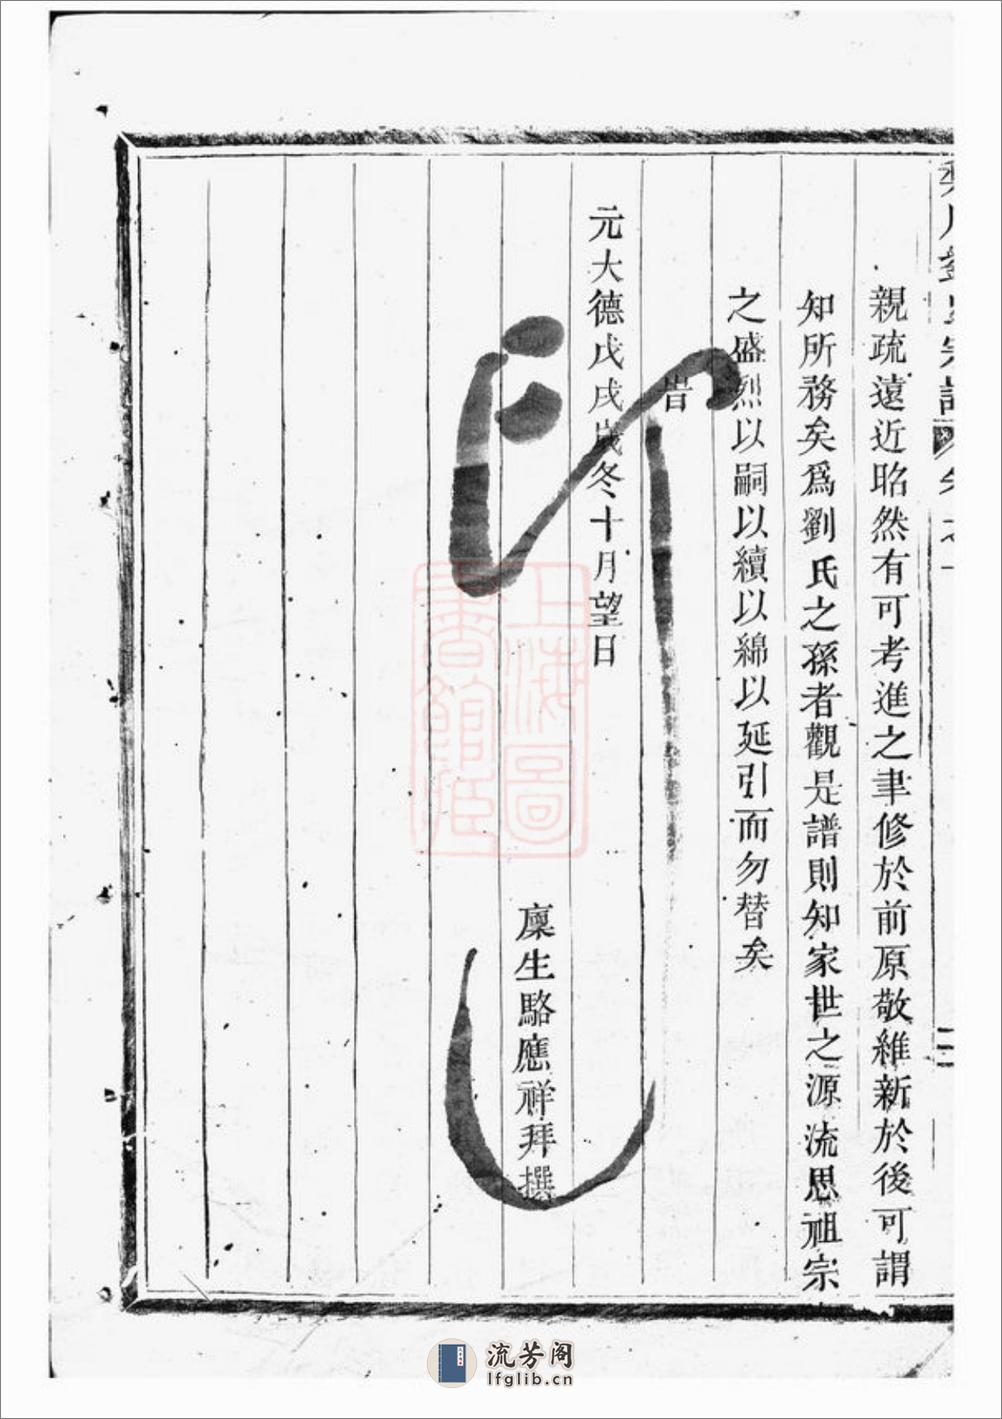 親疏遠近昭然有可考進之聿修於前原敬維新於後可謂
知所務矣爲劉氏之孫者觀是譜則知家世之源流思祖宗
之盛烈以嗣以續以綿以延引而勿替矣
旹
元大德戊戌歲冬十月望日
廩生駱應祥拜撰
上海圖
書館藏
流芳阁
lfglib.cn